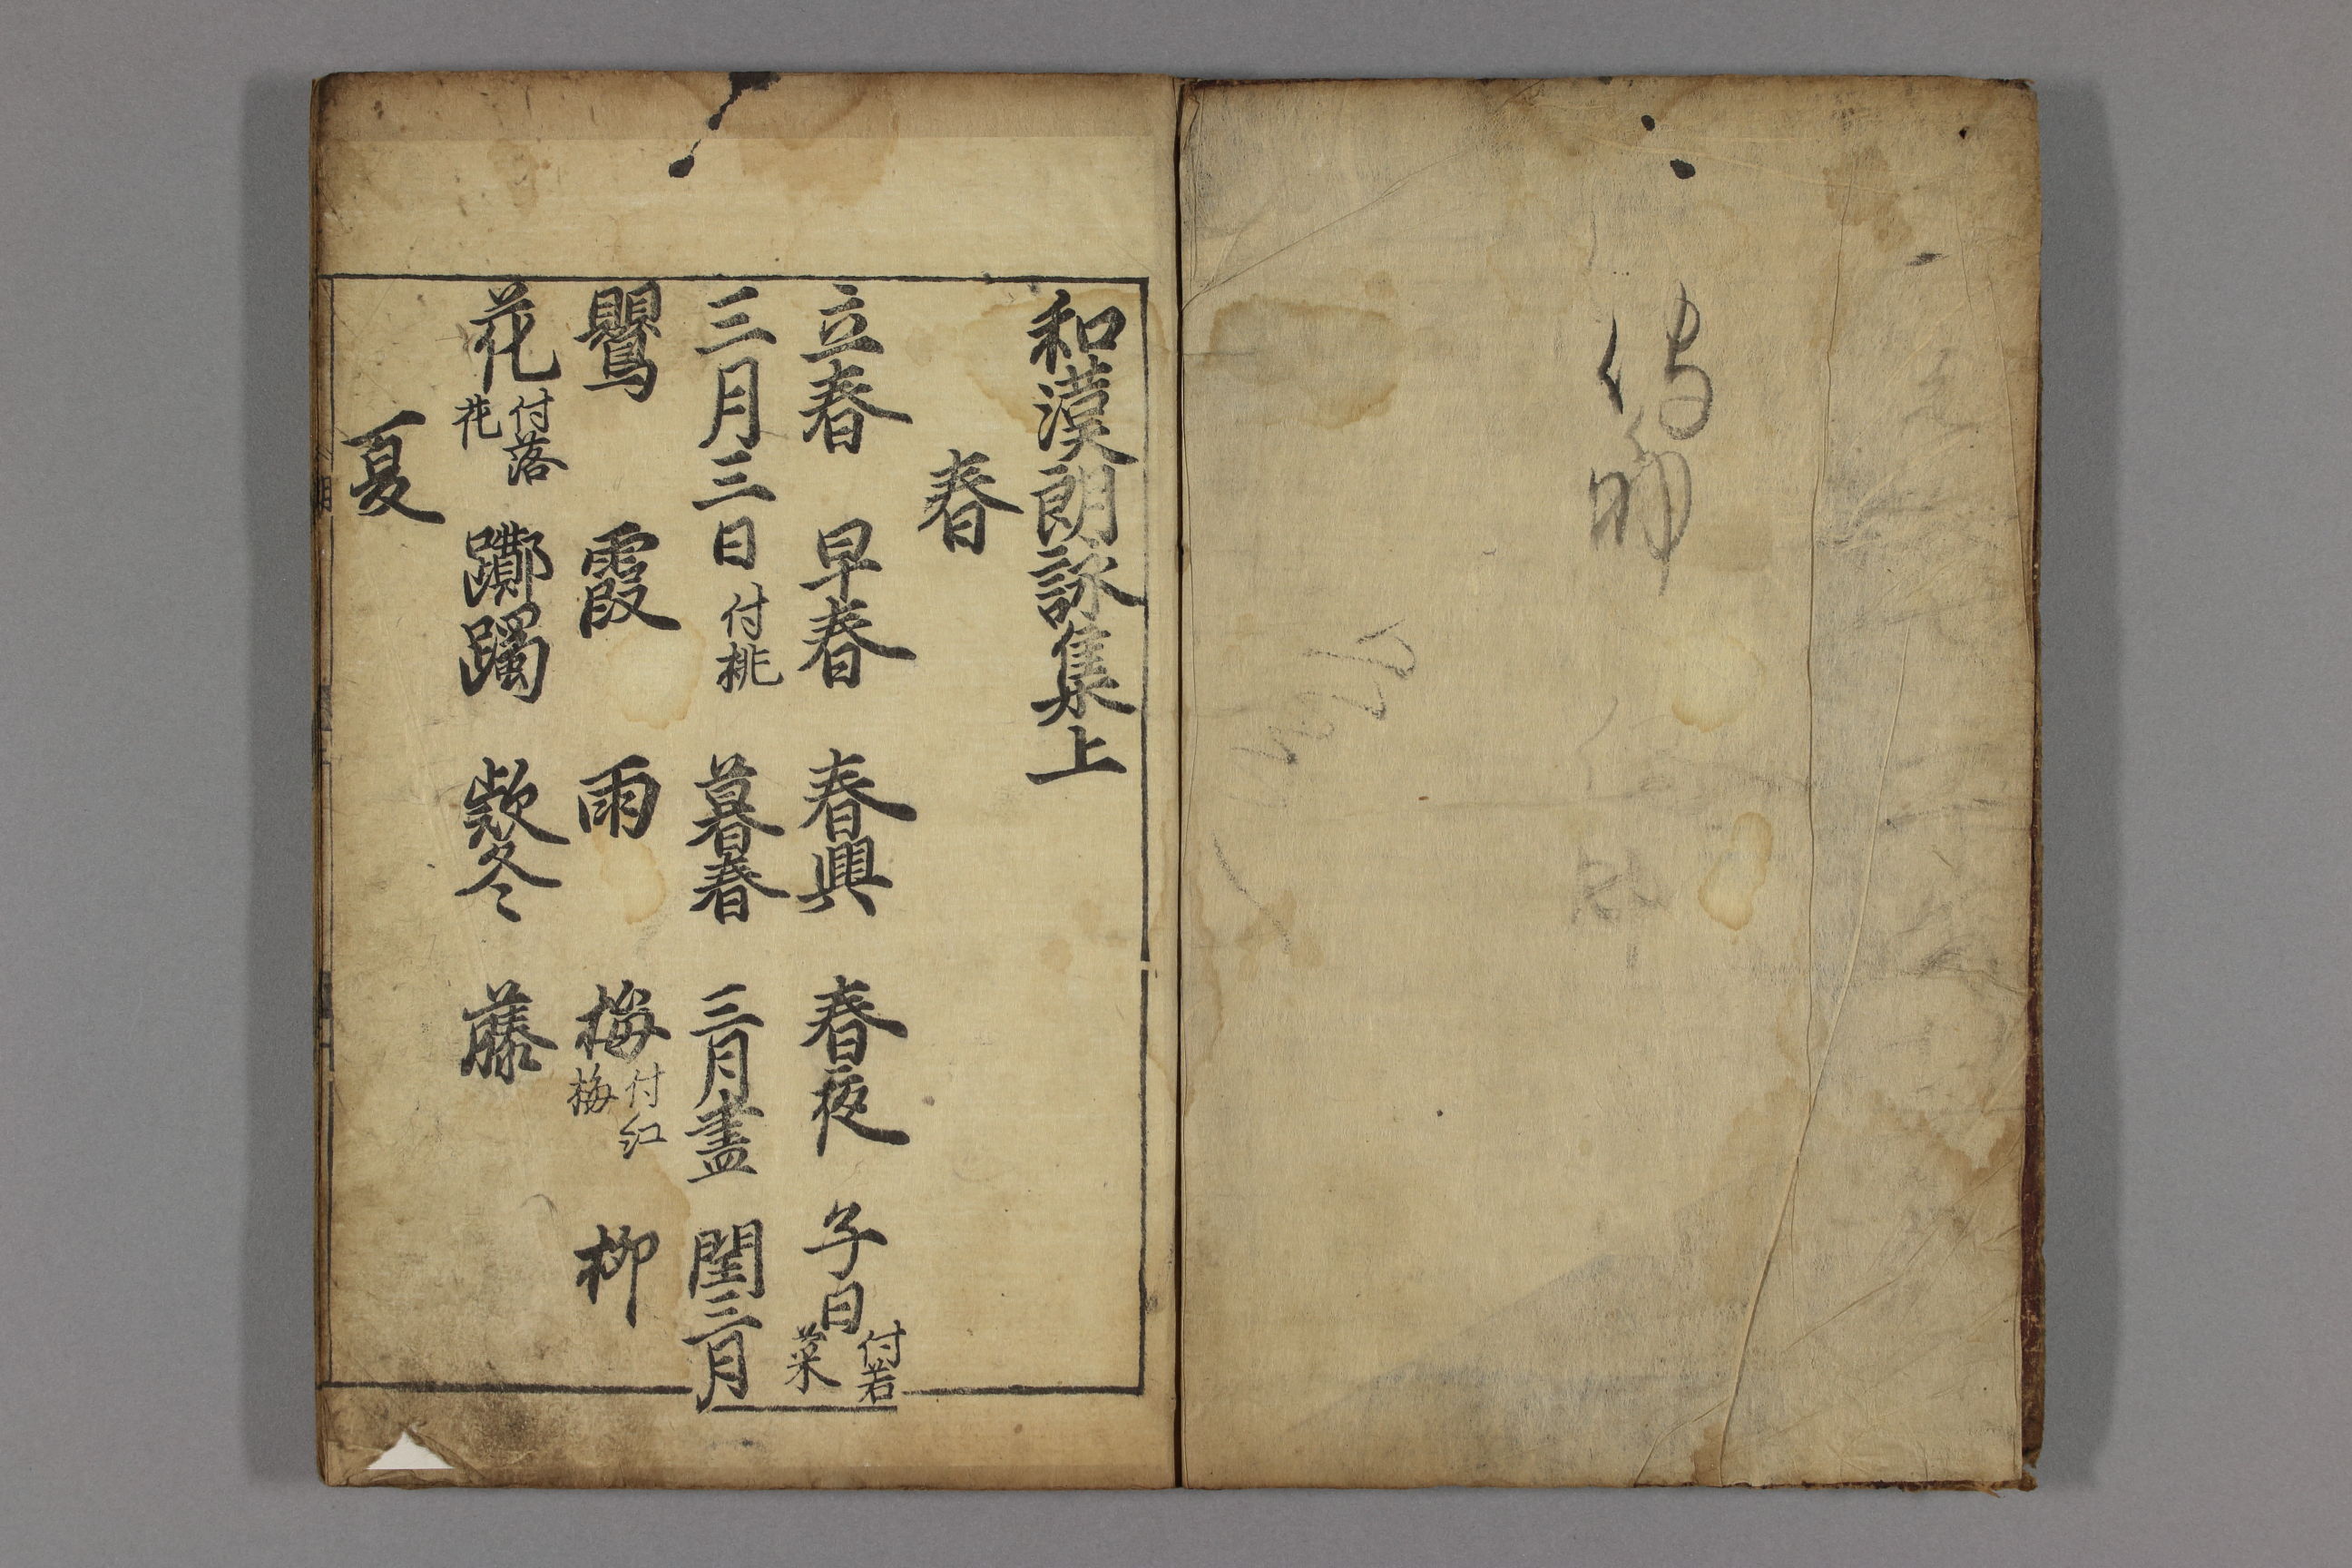 和漢朗詠集上
春
立春 早春 春興 春夜 子日 付若菜
三月三日 付桃 暮春 三月盡 閏三月
鸎 霞 雨 梅 付紅梅 柳
花 付落花 躑躅 欵冬 藤
夏